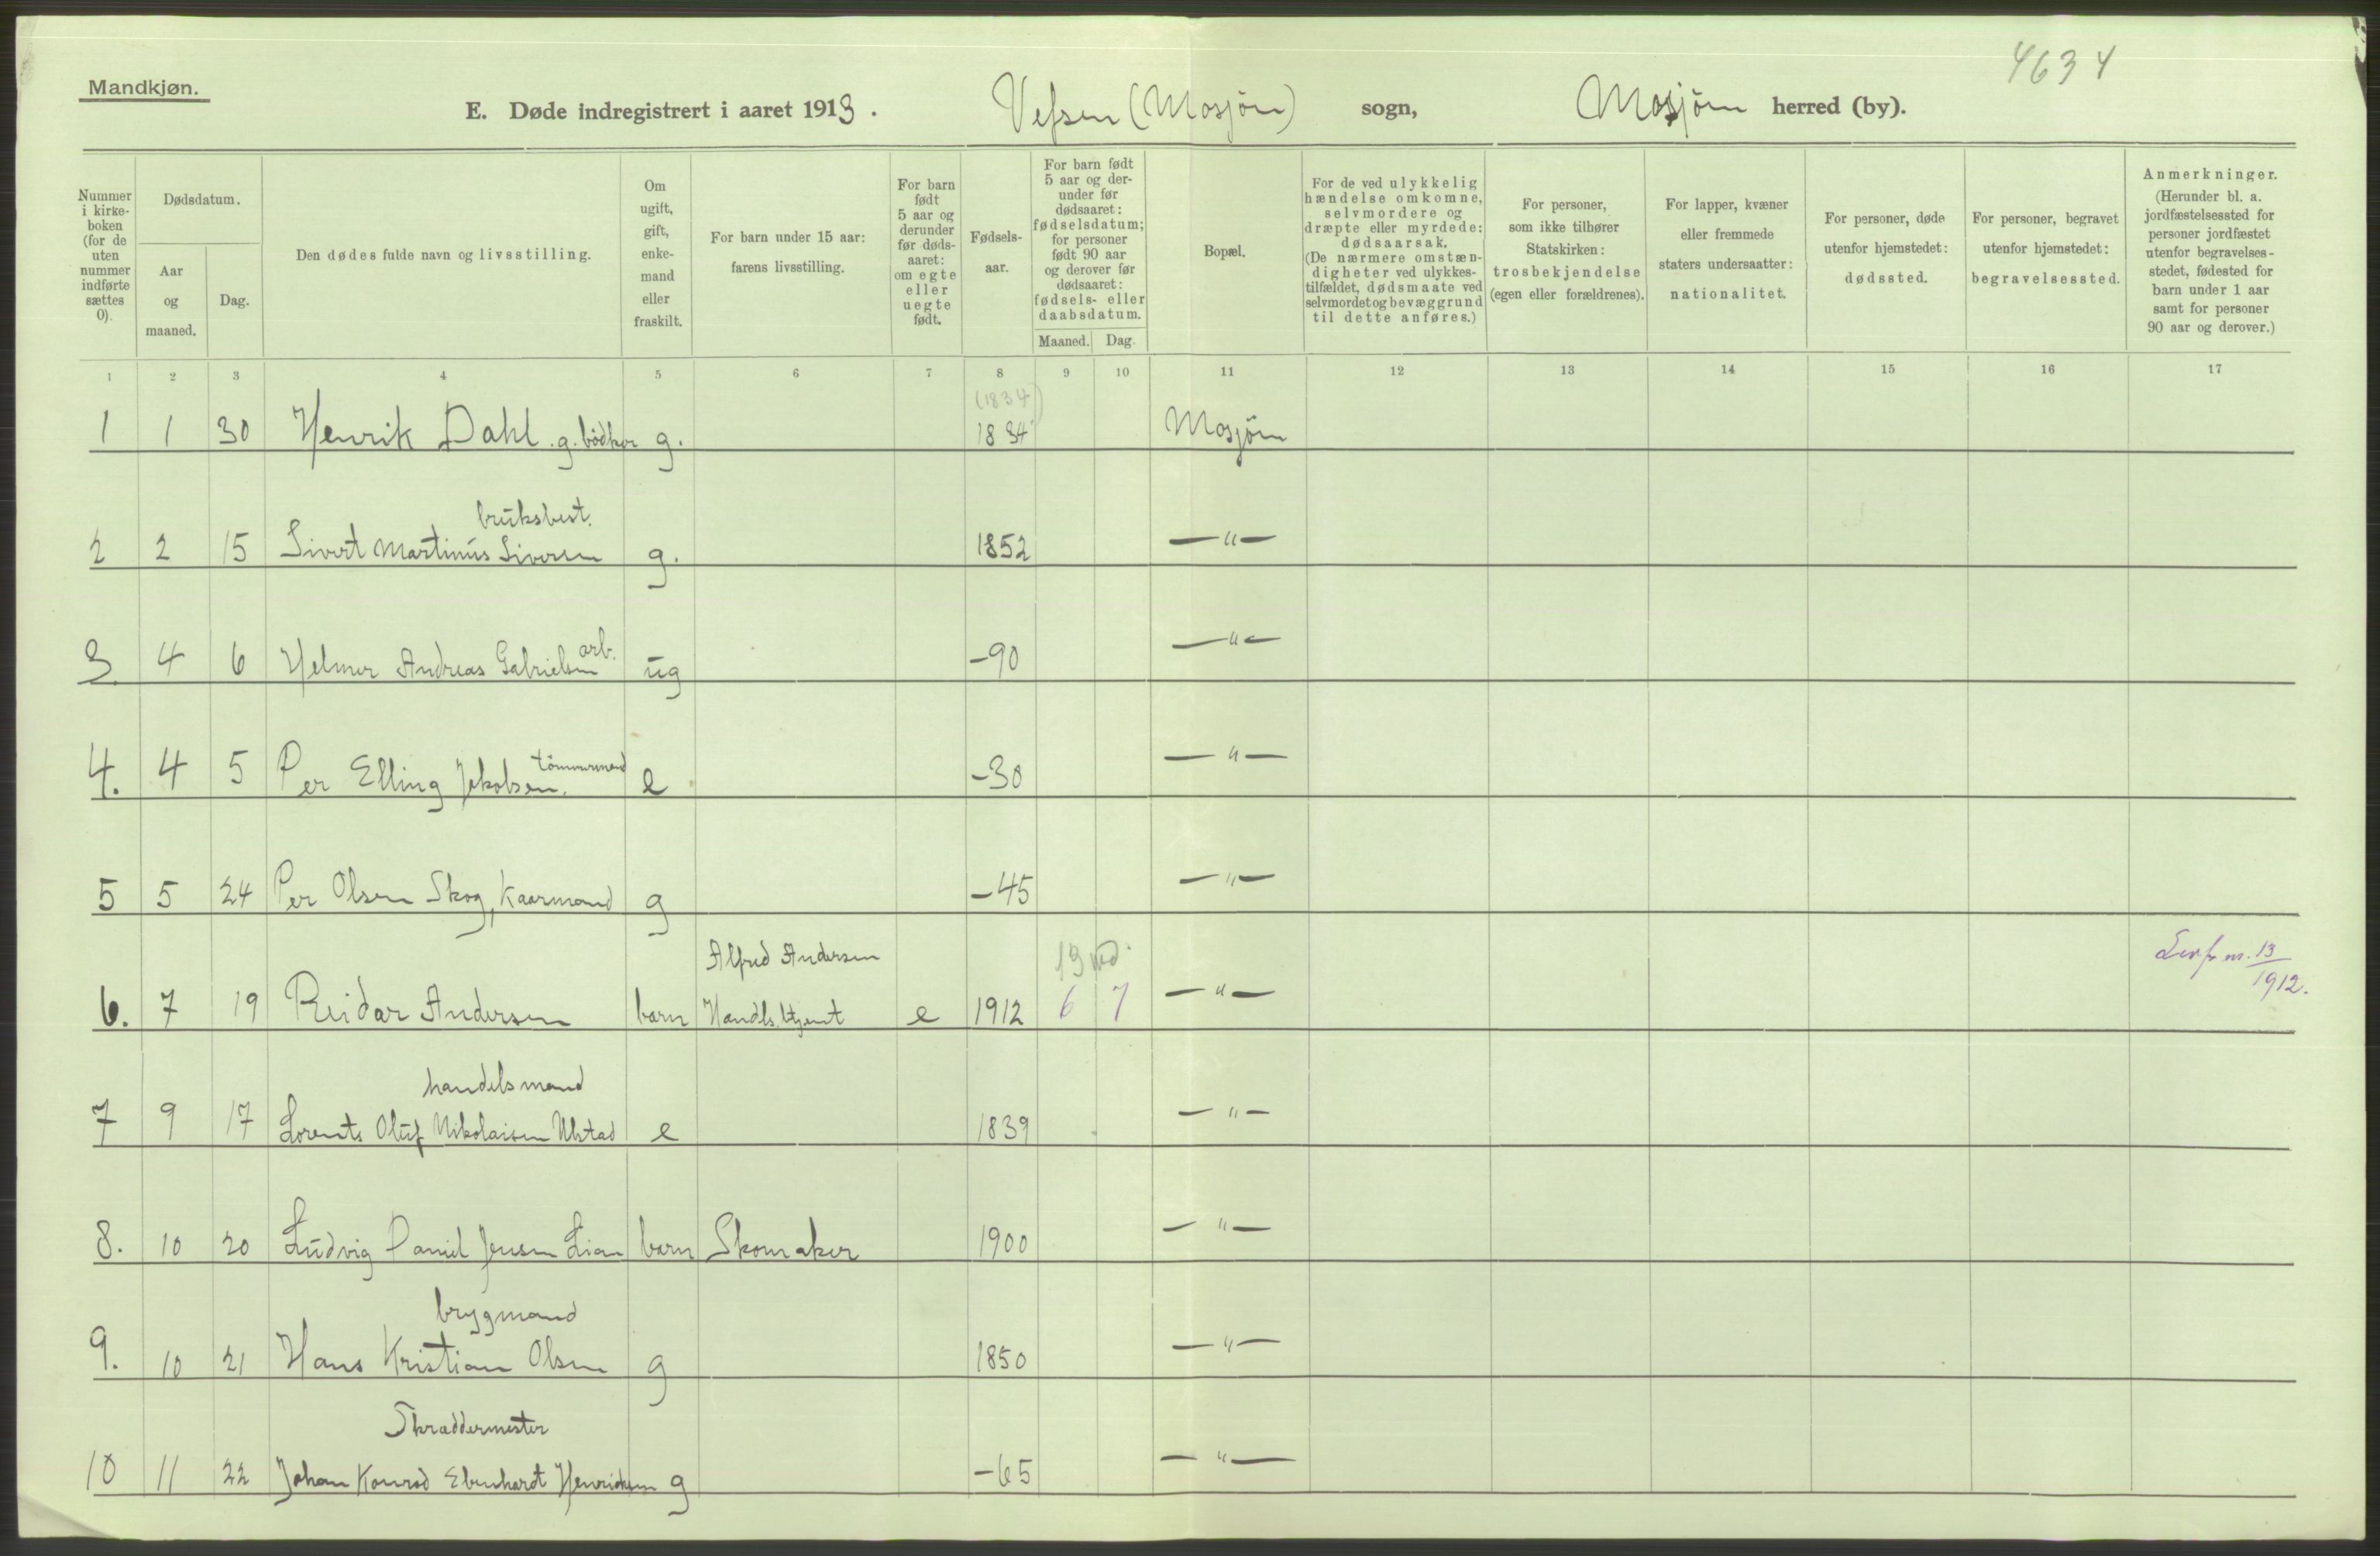 4634
Mandkjøn.
E. Døde indregistrert i aaret 1913. Vefsen (Mosjöen) sogn, Mosjöen herred (by).
Nummer i kirke-boken (for de uten nummer indførte sættes 0).
Dødsdatum.
Aar og maaned.
Dag.
Den dødes fulde navn og livsstilling.
Om ugift, gift, enke-mand eller fraskilt.
For barn under 15 aar: farens livsstilling.
For barn født 5 aar og derunder før døds-aaret: om egte eller uegte født.
Fødsels-aar.
For barn født 5 aar og der-under før dødsaaret: fødselsdatum; for personer født 90 aar og derover før dødsaaret: fødsels- eller daabsdatum.
Maaned. Dag.
Bopæl.
For de ved ulykkelig hændelse omkomne, selvmordere og dræpte eller myrdede: dødsaarsak. (De nærmere omstæn-digheter ved ulykkes-tilfældet, dødsmaate ved selvmordet og bevæggrund til dette anføres.)
For personer, som ikke tilhører Statskirken: trosbekjendelse (egen eller forældrenes).
For lapper, kvæner eller fremmede staters undersaatter: nationalitet.
For personer, døde utenfor hjemstedet: dødssted.
For personer, begravet utenfor hjemstedet: begravelsessted.
Anmerkninger. (Herunder bl. a. jordfæstelsessted for personer jordfæstet utenfor begravelses-stedet, fødested for barn under 1 aar samt for personer 90 aar og derover.)
1 2 3 4 5 6 7 8 9 10 11 12 13 14 15 16 17
(1834)
1 1 30 Henrik Dahl. g. bödker g. 1834 Mosjöen
bruksbest.
2 2 15 Sivert Martinus Siversen g. 1852 —"—
arb.
3 4 6 Helmer Andreas Gabrielsen ug -90 —"—
tömmermand
4. 4 5 Per Elling Jakobsen. e -30 —"—
5 5 24 Per Olsen Skog, Kaarmand g -45 —"—
Alfred Andersen 13
6. 7 19 Reidar Andersen barn Handls.btjent e 1912 6 7 —"— nr. 13/1912.
handelsmand
7 9 17 Lorents Oluf Nikolaisen Ulstad e 1839 —"—
8. 10 20 Ludvig Daniel Jensen Lian barn Skomaker 1900 —"—
brygmand
9. 10 21 Hans Kristian Olsen g 1850 —"—
Skraddermester
10 11 22 Johan Konrad Ebenhardt Henriksen g -65 —"—